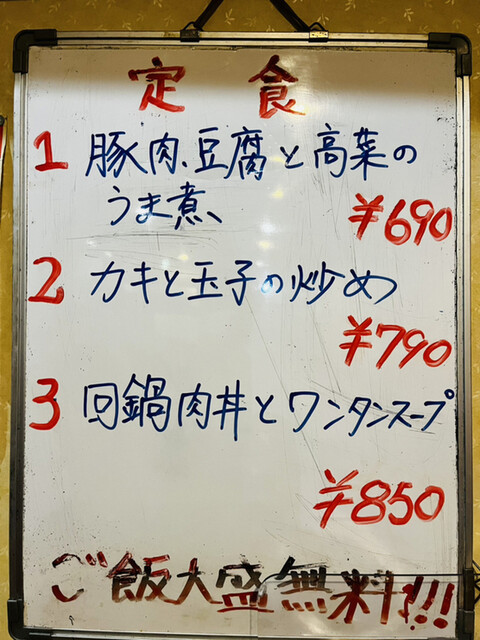 定食
1 豚肉、豆腐と高菜の
うま煮、
¥690
2 カキと玉子の炒め
¥790
3 回鍋肉丼とワンタンスープ
¥850
ご飯大盛無料!!!